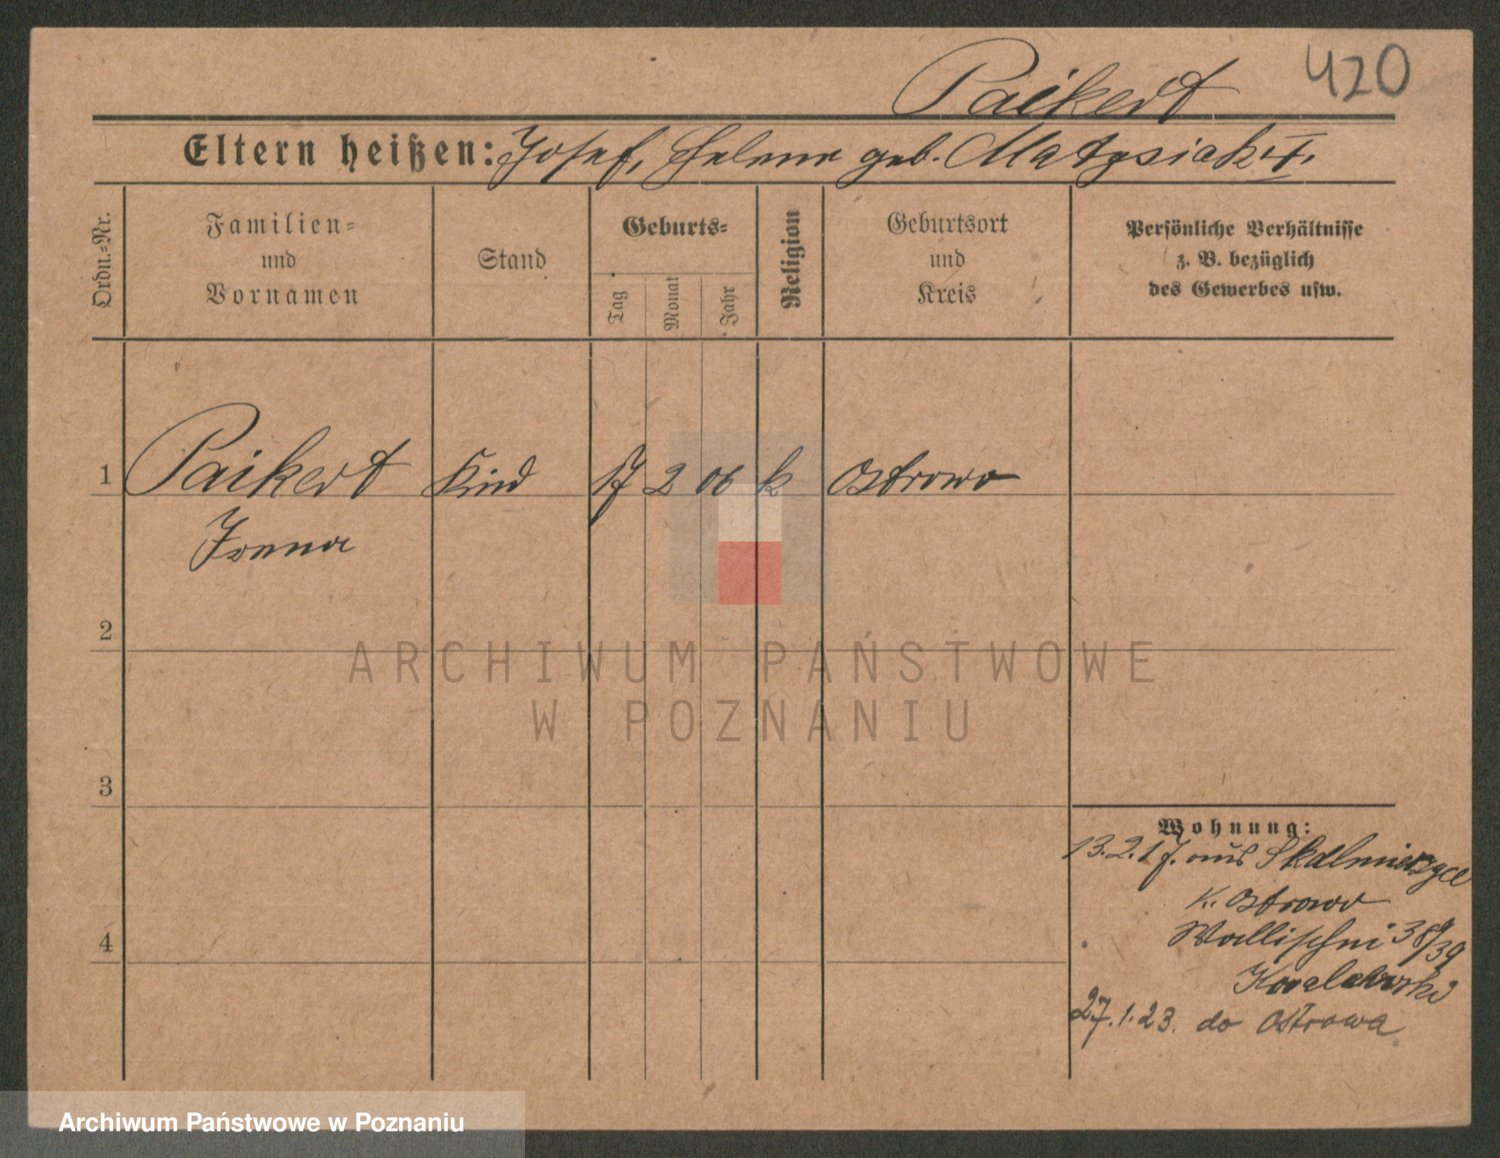 420
Paikert
Eltern heißen: Josef, Helene geb. Matysiak
Ordn.-Nr.
Familien-
und
Vornamen
Stand
Geburts-
Tag
Monat
Jahr
Religion
Geburtsort
und
Kreis
Persönliche Verhältnisse
z. B. bezüglich
des Gewerbes usw.
1 Paikert Kind 17 2 06 k Ostrowo
2
3
4
Wohnung:
13.2.17. aus Skalmierzyce
K. Ostrowo
Wallischei 38/39
27.1.23. do Ostrowa
ARCHIWUM PAŃSTWOWE
W POZNANIU
Archiwum Państwowe w Poznaniu